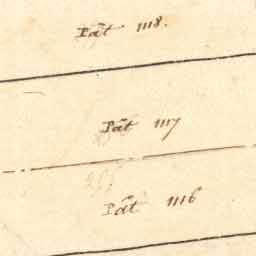 Pãt 1118.
Pãt 1117
Pãt 1116